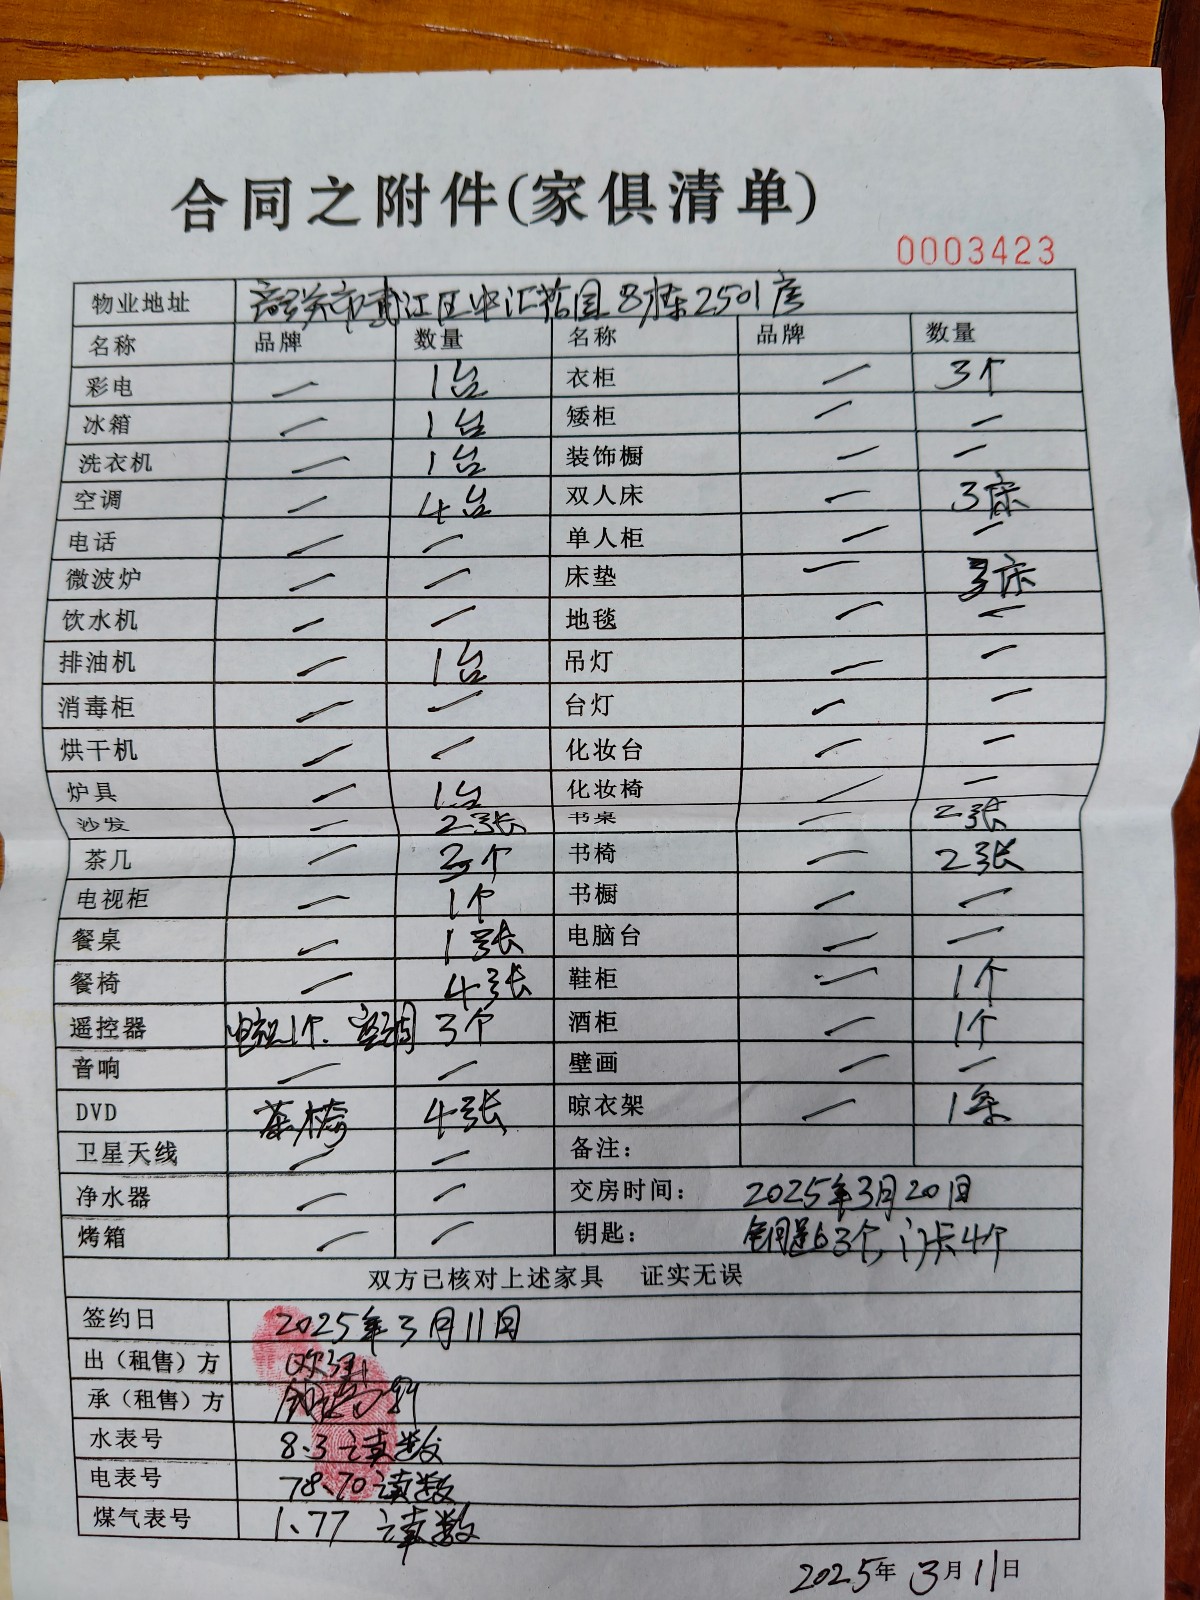 合同之附件(家俱清单)
0003423
物业地址 市 江区中汇 园8栋2501房
名称 品牌 数量 名称 品牌 数量
彩电 — 1台 衣柜 — 3个
冰箱 — 1台 矮柜 — —
洗衣机 — 1台 装饰橱 — —
空调 — 4台 双人床 — 3床
电话 — — 单人柜 — —
微波炉 — — 床垫 — 3床
饮水机 — — 地毯 — —
排油机 — 1台 吊灯 — —
消毒柜 — — 台灯 — —
烘干机 — — 化妆台 — —
炉具 — 1台 化妆椅 — —
沙发 — 2张 书桌 — 2张
茶几 — 2个 书椅 — 2张
电视柜 — 1个 书橱 — —
餐桌 — 1张 电脑台 — —
餐椅 — 4张 鞋柜 — 1个
遥控器 电视1个、空调 3个 酒柜 — 1个
音响 — — 壁画 — —
DVD 茶椅 4张 晾衣架 — 1条
卫星天线 — — 备注:
净水器 — — 交房时间: 2025年3月20日
烤箱 — — 钥匙: 钥匙3个,门卡4个
双方已核对上述家具 证实无误
签约日 2025年3月11日
出(租售)方
承(租售)方
水表号 8.3读数
电表号 78.70读数
煤气表号 1.77 读数
2025年3月11日